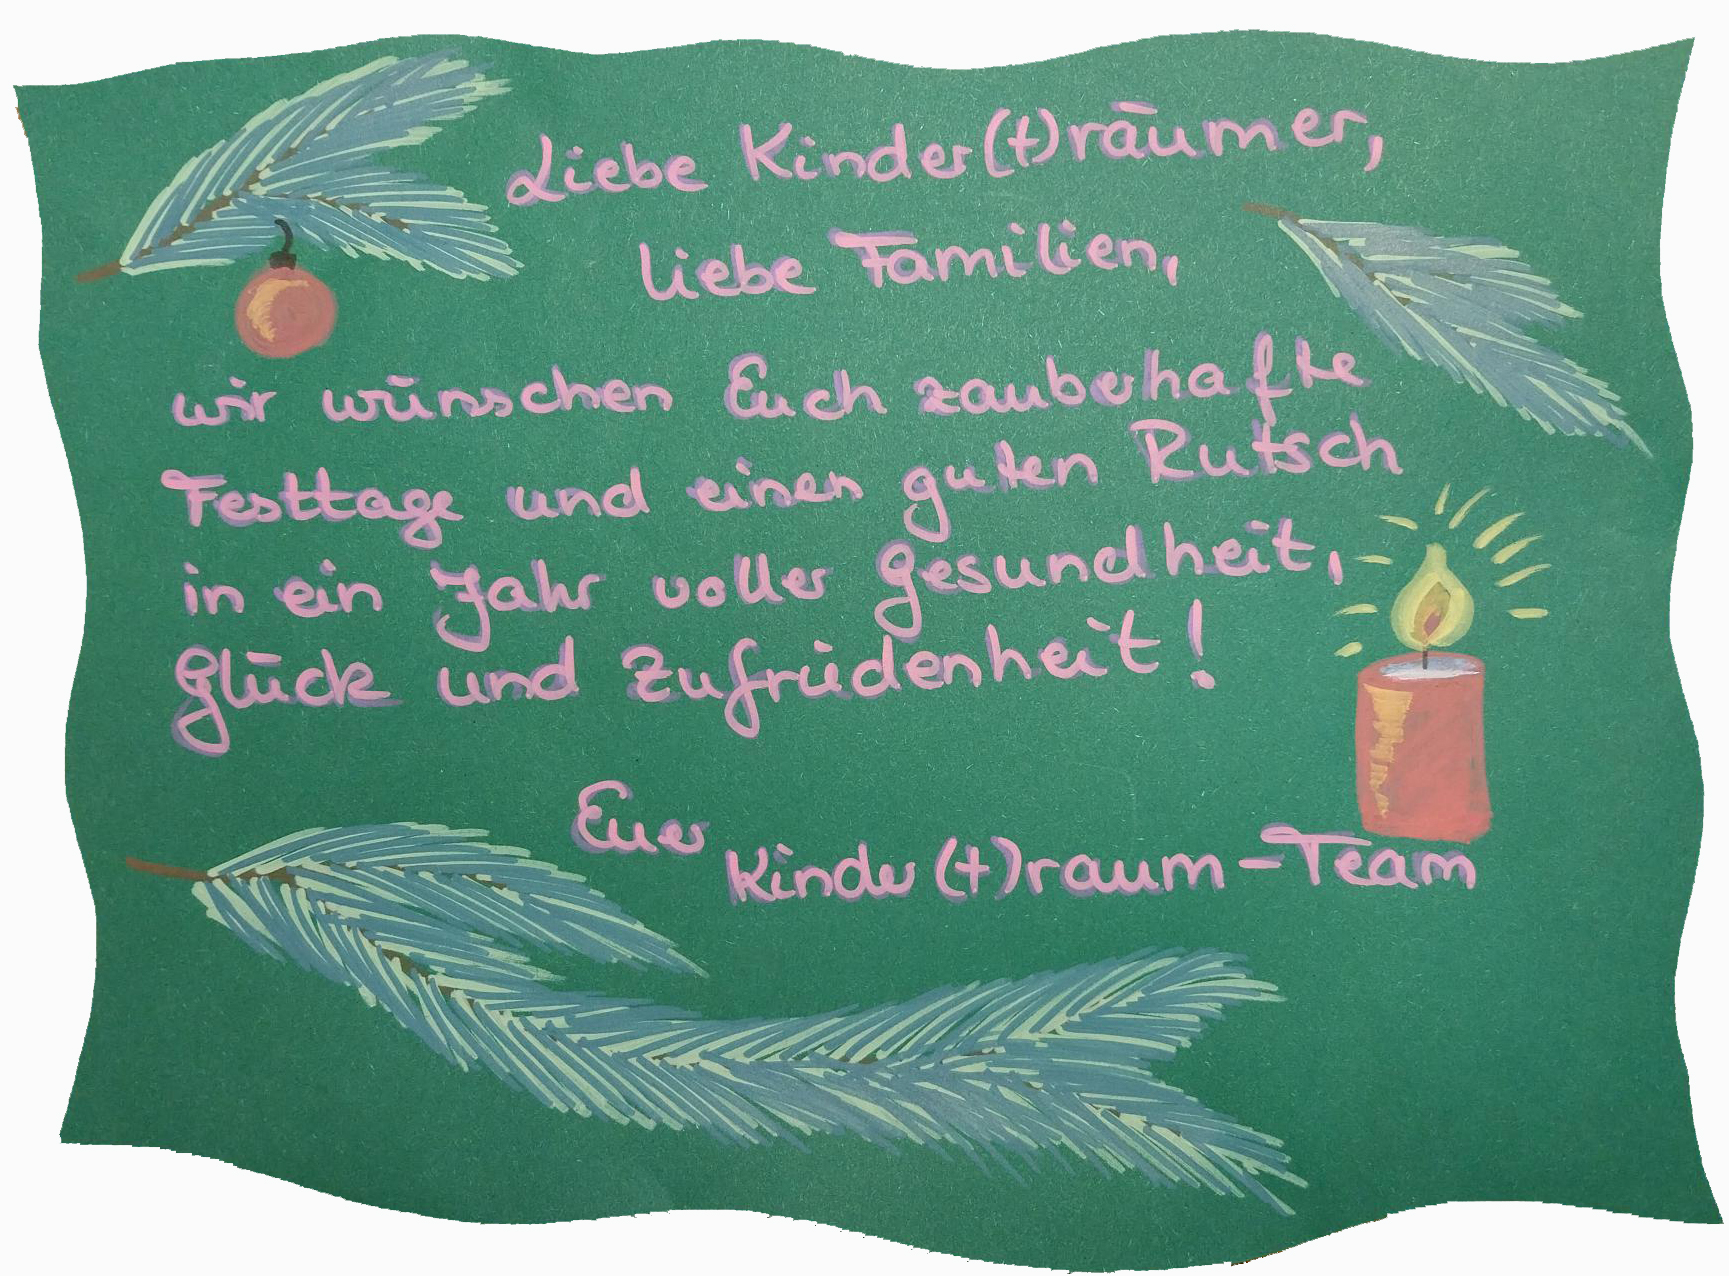 Liebe Kinder(t)räumer,
liebe Familien,
wir wünschen Euch zauberhafte
Festtage und einen guten Rutsch
in ein Jahr voller Gesundheit,
Glück und Zufriedenheit!
Euer
Kinder(t)raum-Team